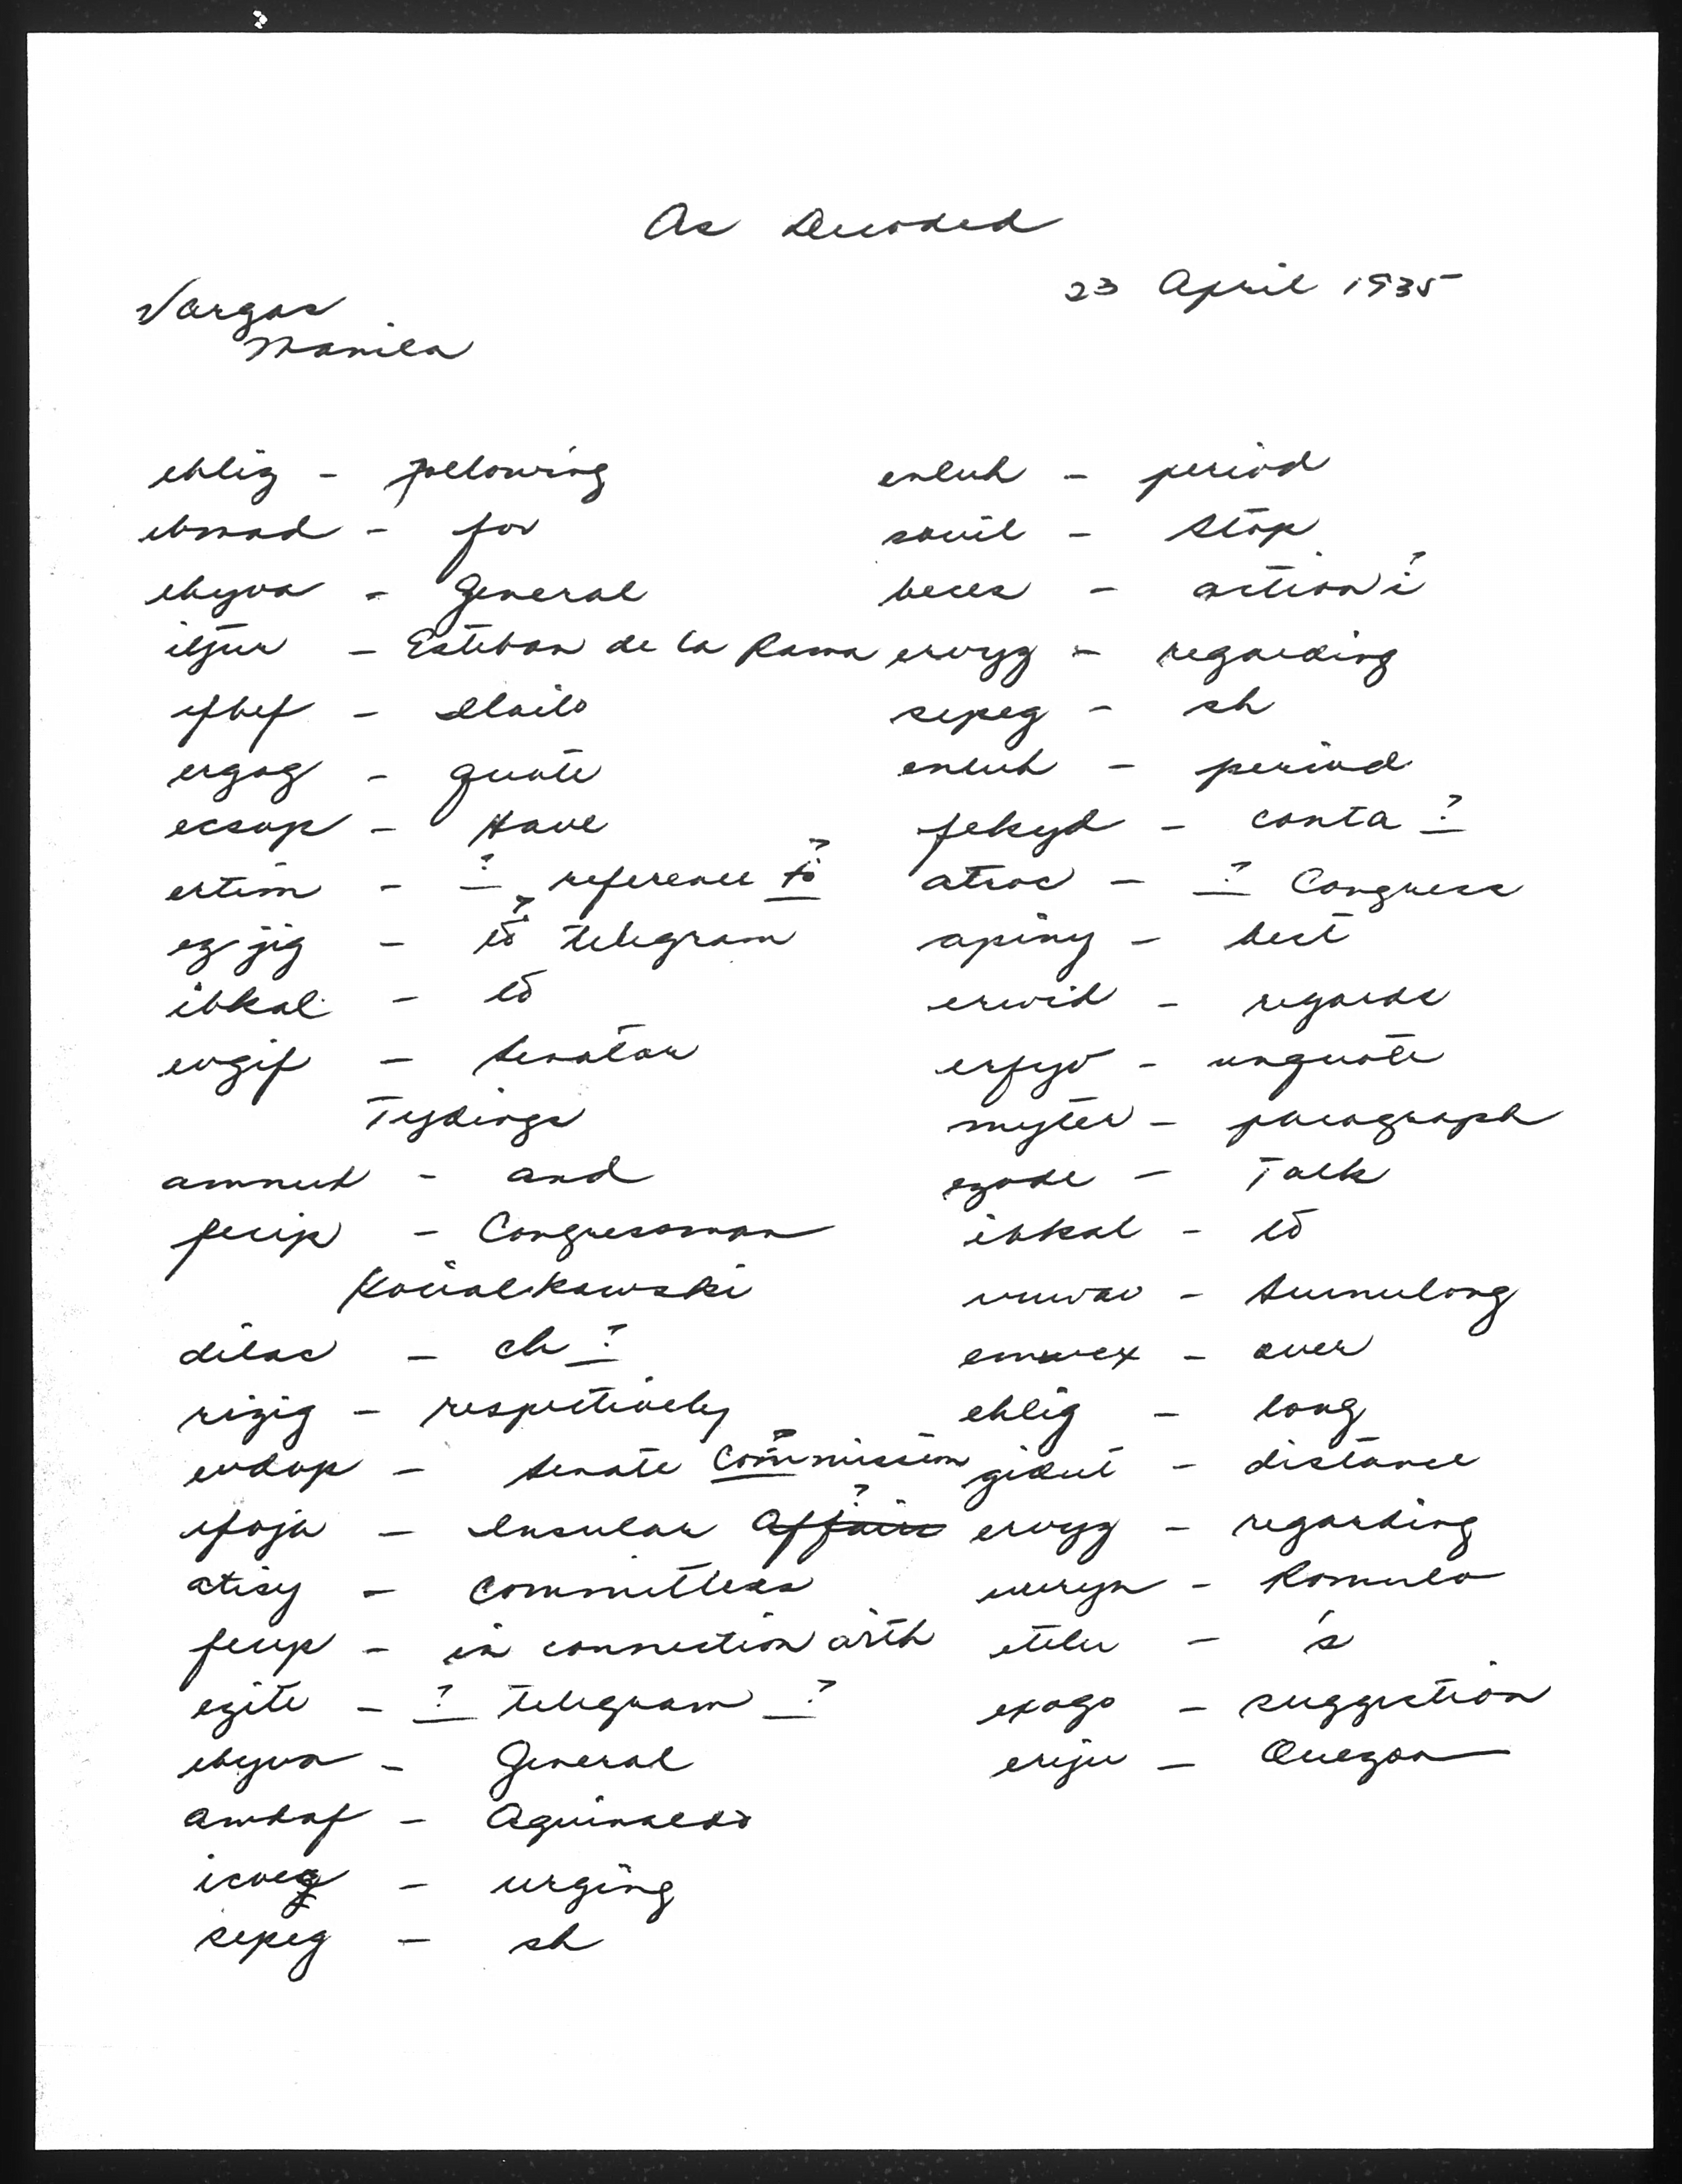 As Decoded
23 April 1935
Vargas
Manila
ehliz - following
ebmad - for
ehyva - General
iljur - Esteban de la Rama
ifhef - Iloilo
ergog - quote
ecsop - Have
ertim - ? reference to ?
ezjig - to ? telegram
ibkal - to
evgif - Senator
Tydings
amnuh - and
fecip - Congressman
Kocialkowski
dilac - ch ?
rizig - respectively
evdop - Senate Commission ?
ifoja - Insular Affairs ?
atisy - Committees
fecyp - in connection with
ezite - ? telegram ?
ehyva - General
amhaf - Aguinaldo
icveg - urging
sepeg - sh
enluh - period
sovil - Stop
beces - action i ?
ervyz - regarding
sepeg - sh
enluh - period
fekyd - conta ?
atroc - ? Congress
apiny - best
erwid - regards
erfyo - unquote
myter - paragraph
ezode - Talk
ibkal - to
uvwav - Sumulong
emwex - over
ehlig - long
gidut - distance
ervyz - regarding
uveryn - Romulo
etelu - 's
exogo - suggestion
eriju - Quezon